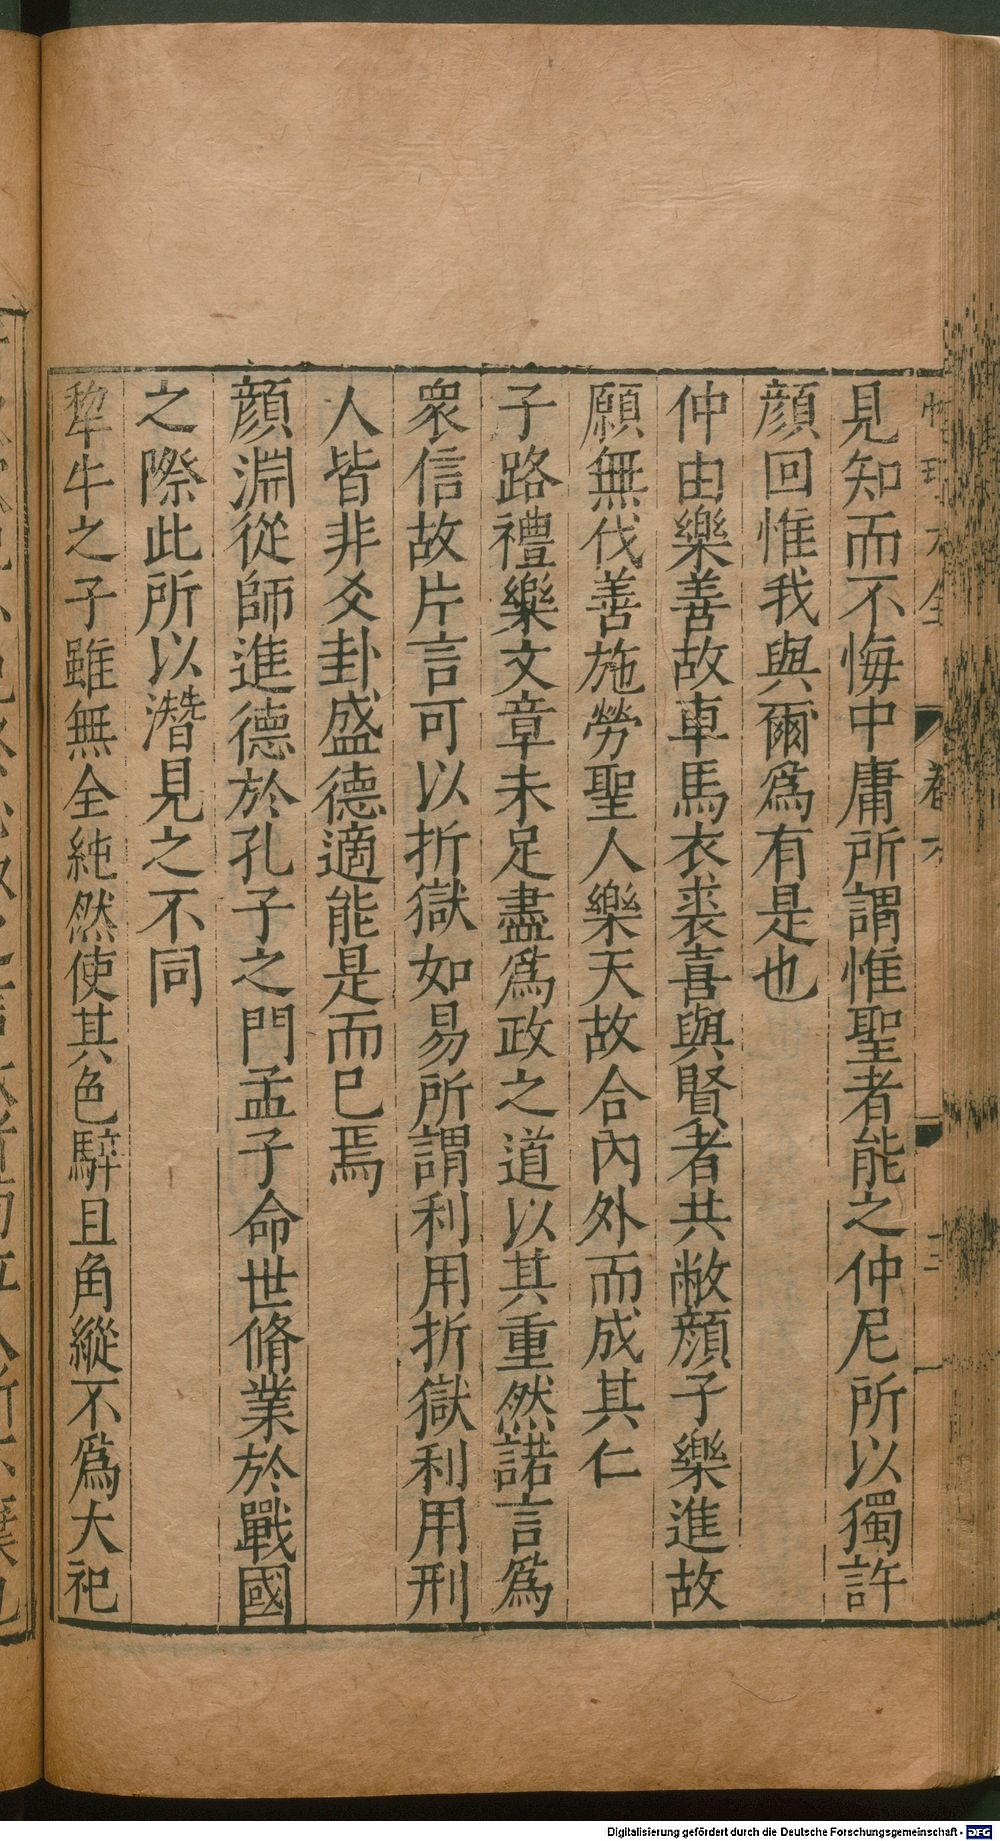 見知而不悔中庸所謂惟聖者能之仲尼所以獨許
顏回惟我與爾爲有是也
仲由樂善故車馬衣裘喜與賢者共敝顏子樂進故
願無伐善施勞聖人樂天故合內外而成其仁
子路禮樂文章未足盡爲政之道以其重然諾言爲
衆信故片言可以折獄如易所謂利用折獄利用刑
人皆非爻卦盛德適能是而已焉
顏淵從師進德於孔子之門孟子命世脩業於戰國
之際此所以潛見之不同
犂牛之子雖無全純然使其色騂且角縱不爲大祀
Digitalisierung gefördert durch die Deutsche Forschungsgemeinschaft - DFG